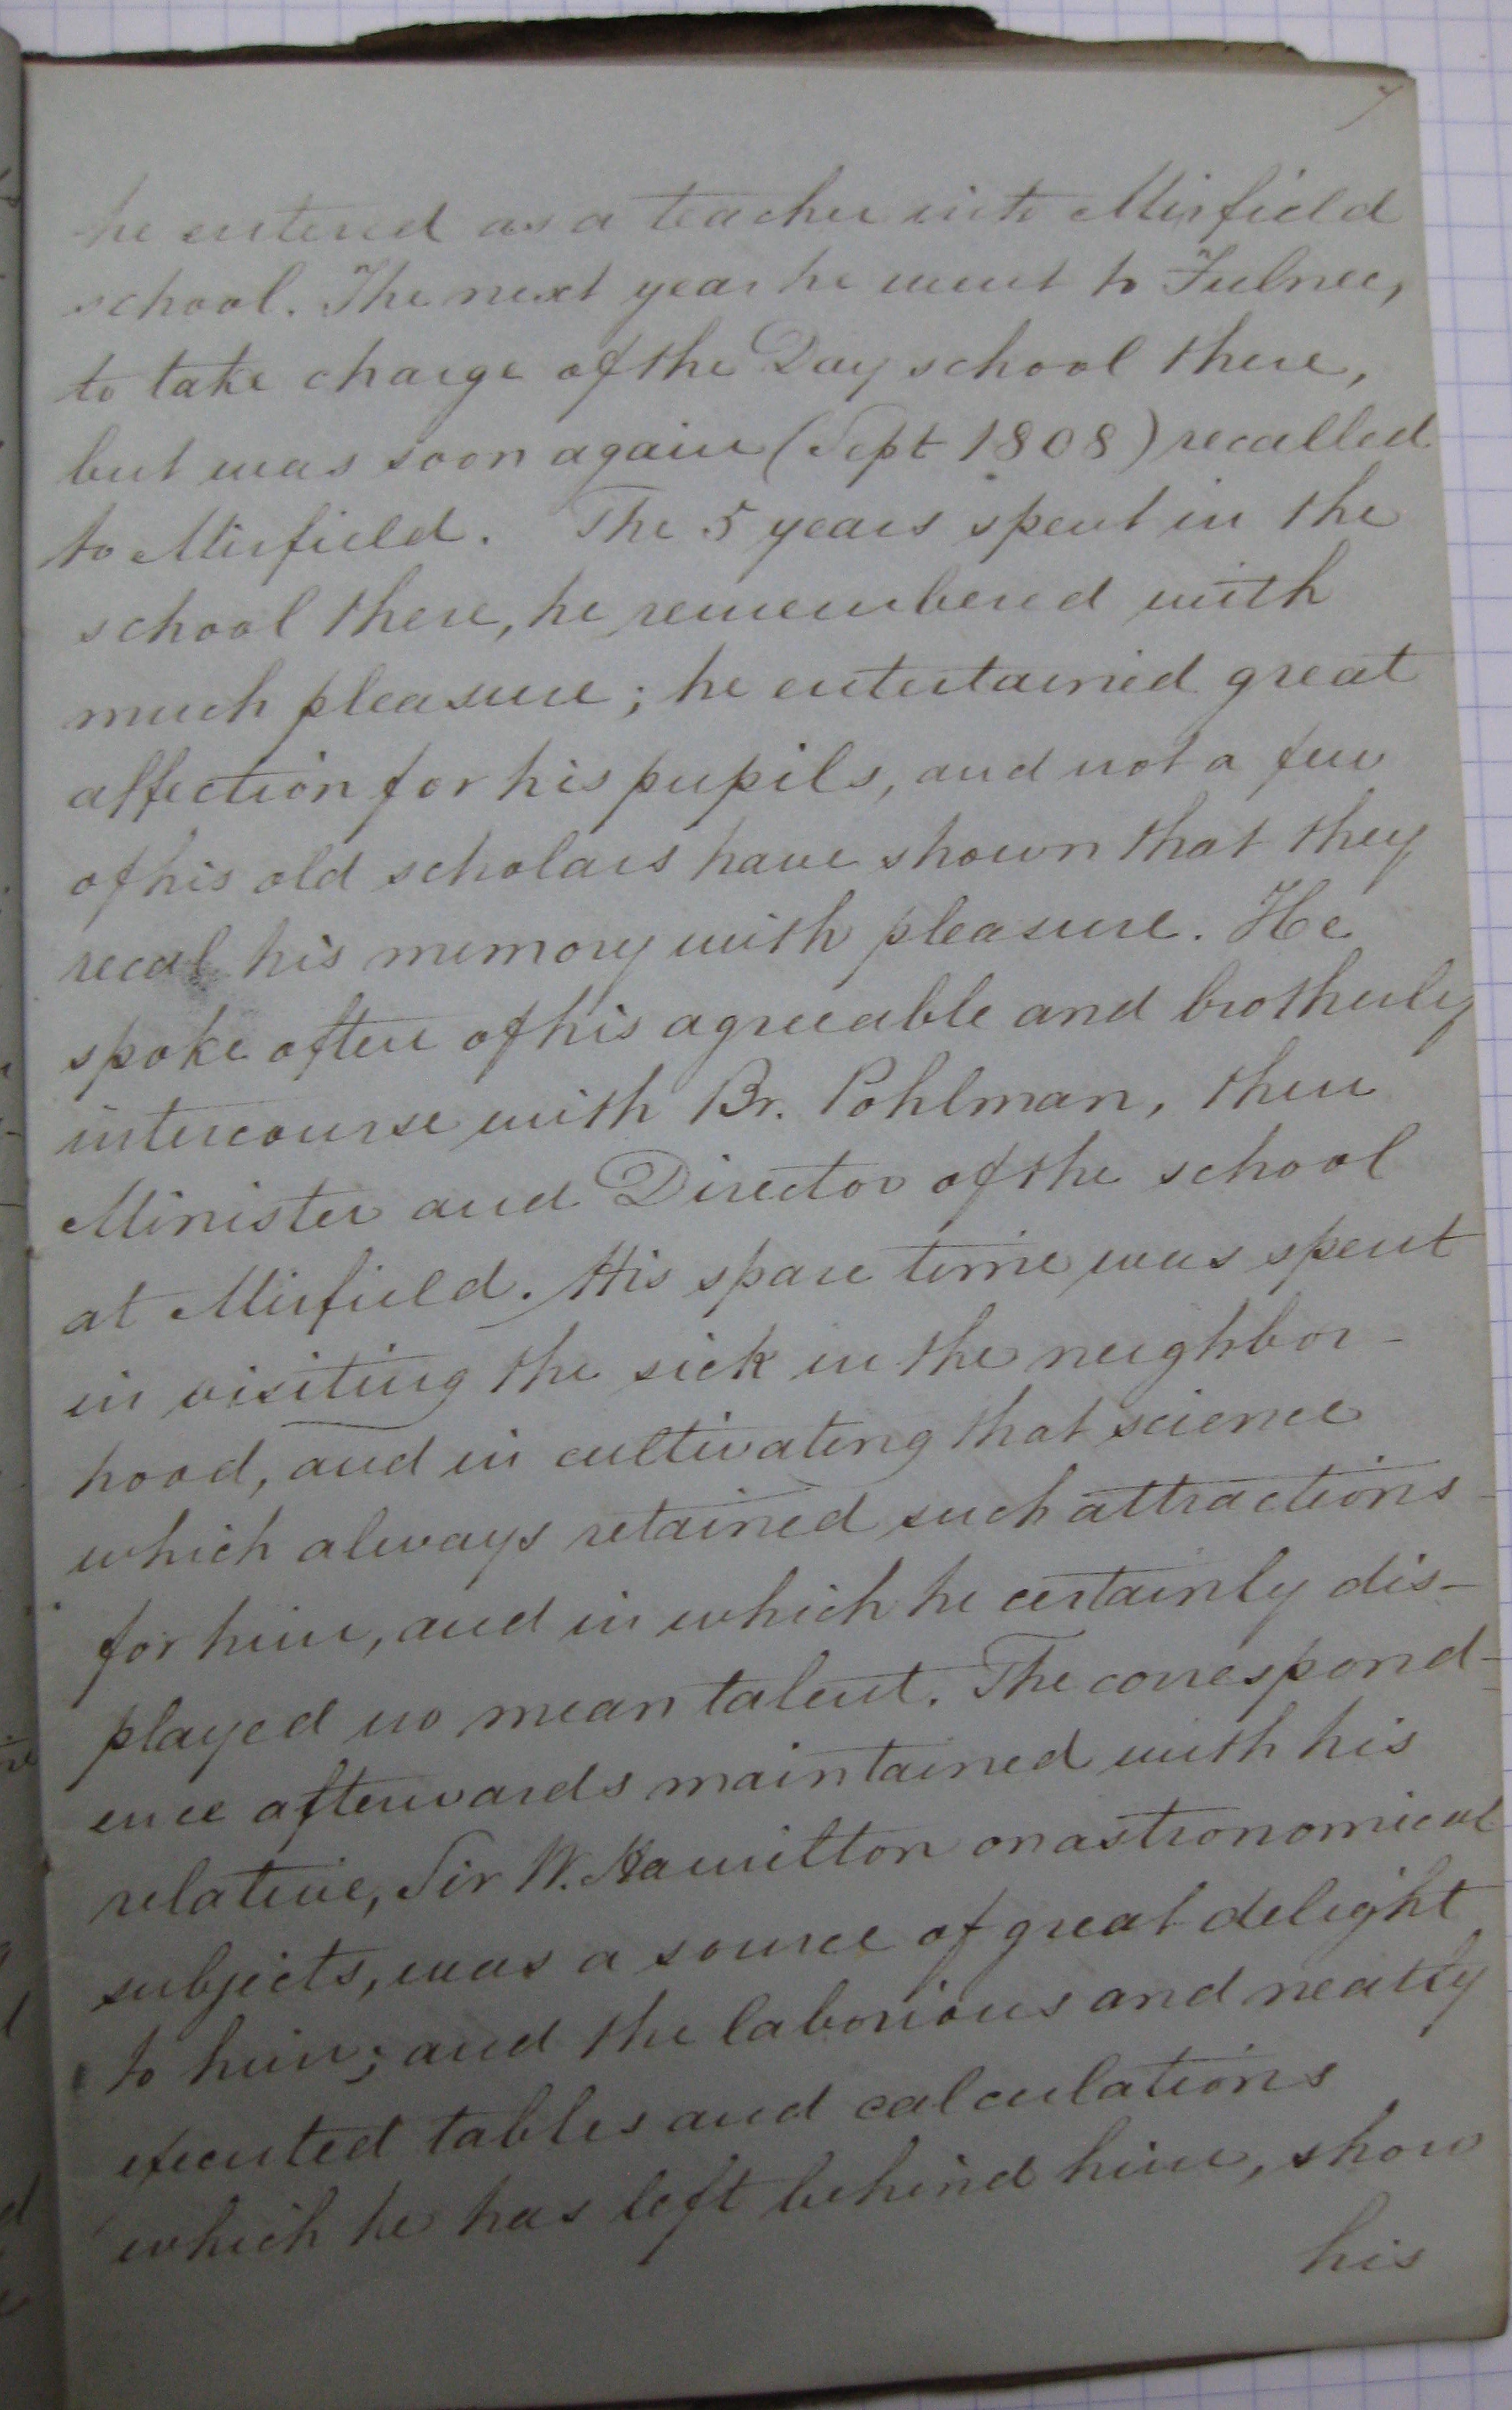 7
he entered as a teacher into Mirfield
school. The next year he went to Fulnec,
to take charge of the Day school there,
but was soon again (Sept 1808) recalled
to Mirfield. The 5 years spent in the
school there, he remembered with
much pleasure; he entertained great
affection for his pupils, and not a few
of his old scholars have shown that they
recal his memory with pleasure. He
spoke often of his agreeable and brotherly
intercourse with Br. Pohlman, then
Minister and Director of the school
at Mirfield. His spare time was spent
in visiting the sick in the neighbor-
hood, and in cultivating that science
which always retained such attractions
for him, and in which he certainly dis-
played no mean talent. The correspond-
ence afterwards maintained with his
relative, Sir W. Hamilton on astronomical
subjects, was a source of great delight
to him; and the laborious and neatly
executed tables and calculations
which he has left behind him, show
his